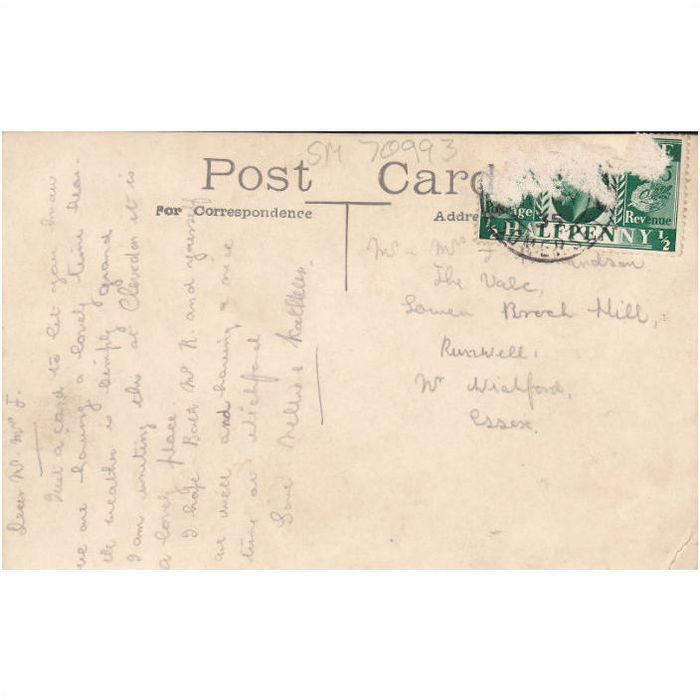 SM 70993
Post Card
For Correspondence
Addre
Postage
Revenue
½ HALFPENNY ½
SOMERSET
Mr - Mrs J
The Vale,
Lower Broch Hill,
Runwell,
Nr Wickford,
Essex.
Dear Mr. Mrs F.
Just a card to let you know
we are having a lovely time dear
the weather is simply grand
I am writing this at Clevedon it is
a lovely place.
I hope Both Mr R. and yourself
are well and having a nice
time at Wickford
Love Nellie & Kathleen.